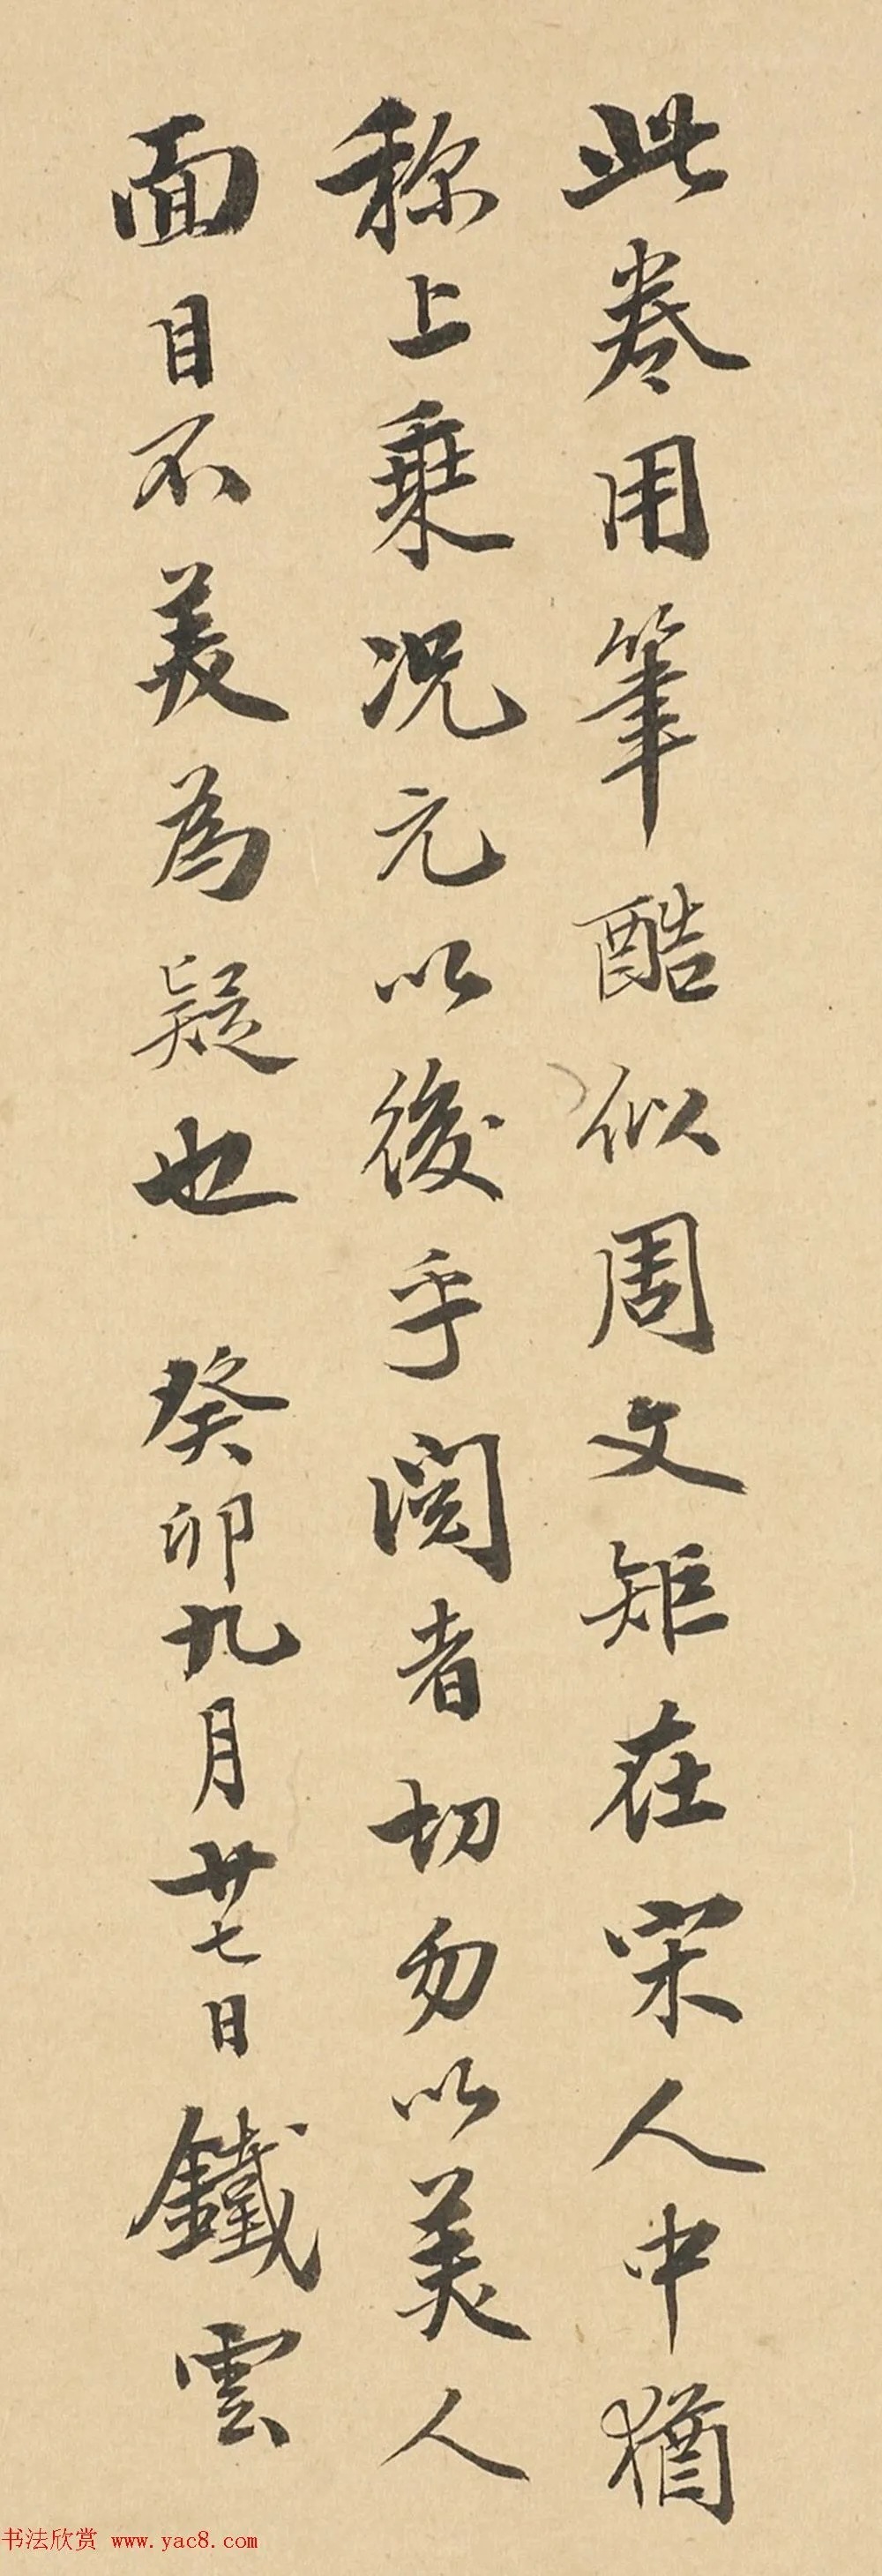 此卷用筆酷似周文矩在宋人中猶
称上乗况元以後乎閱者切勿以美人
面目不美為疑也 癸卯九月廿七日鐵雲
书法欣赏 www.yac8.com